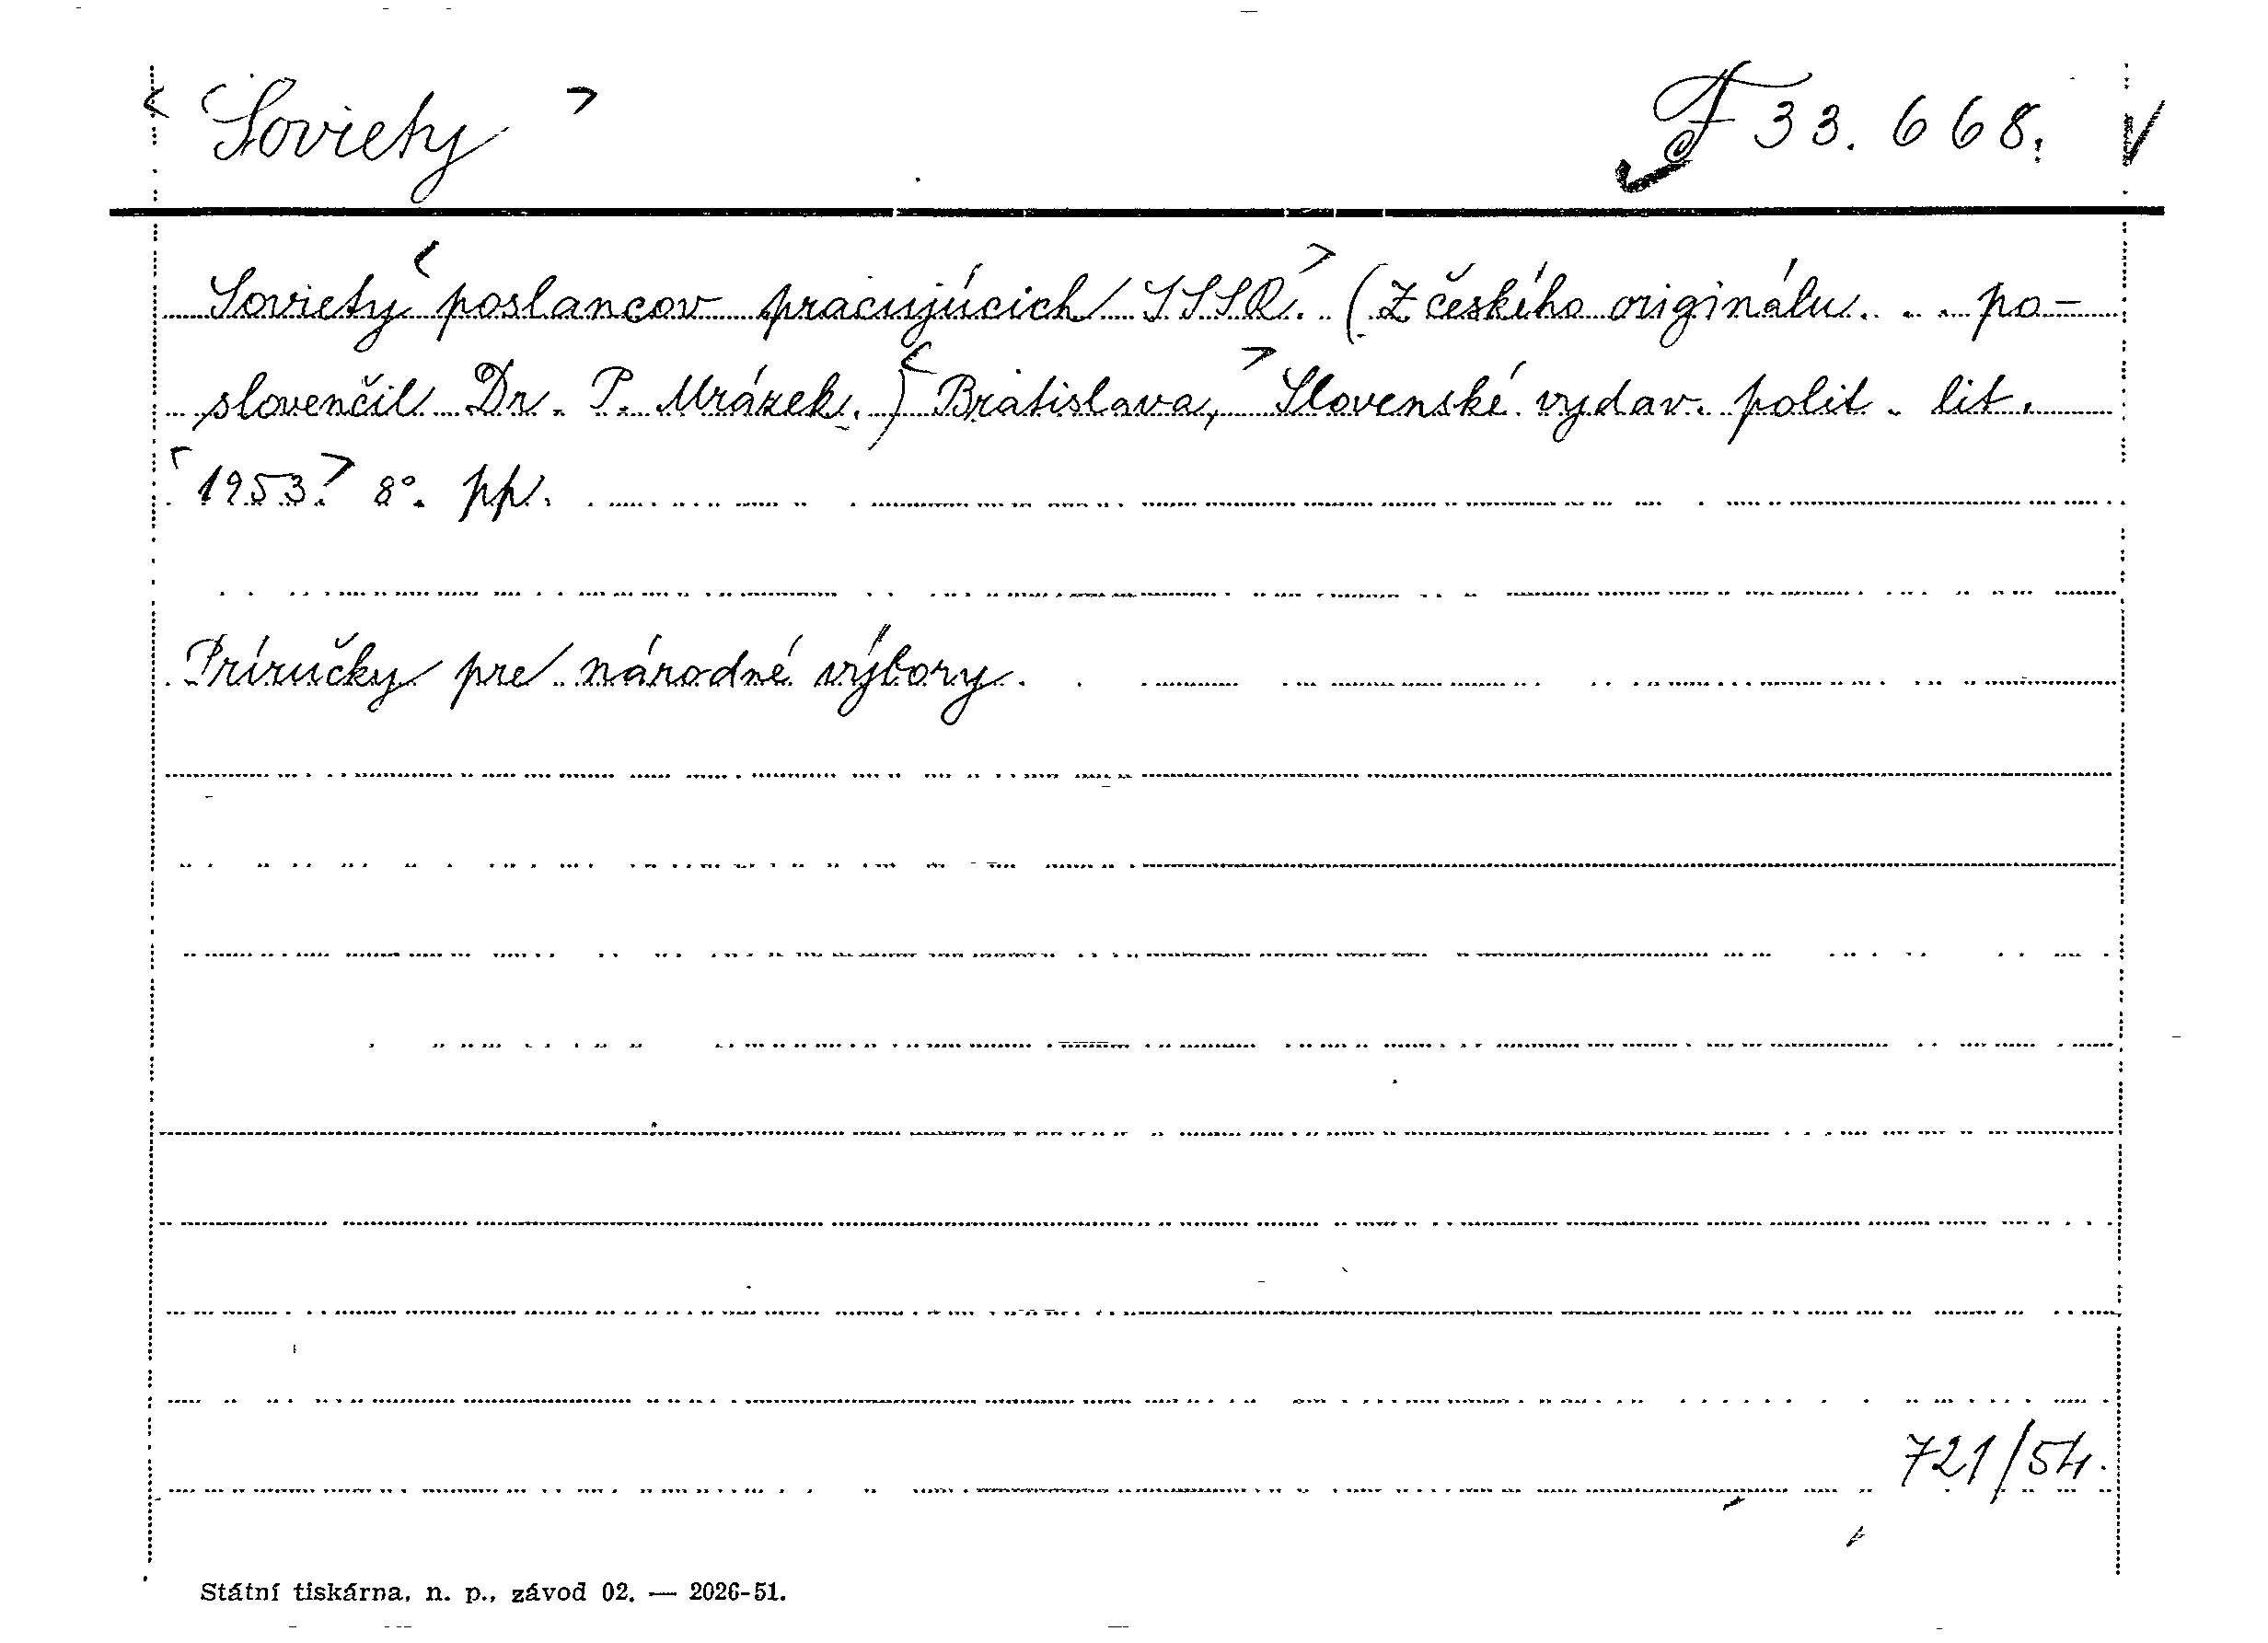 Soviety F 33.668.
Soviety poslancov pracujúcich SSSR. (Z českého originálu... po-
slovenčil Dr. P. Mrázek.) Bratislava, Slovenské vydav. polit. lit.
1953. 8°. pp.
Príručky pre národné výbory.
721/54.
Státní tiskárna, n. p., závod 02. — 2026-51.